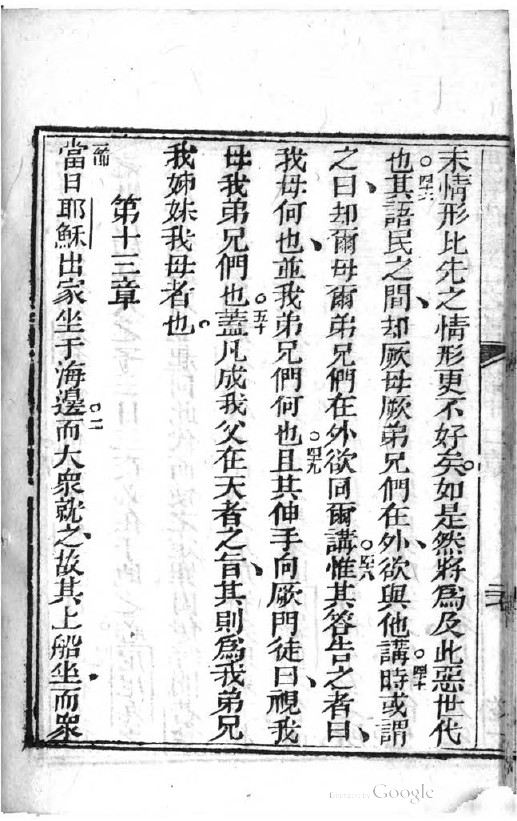 末情形比先之情形更不好矣。如是然將爲及此惡世代
也。四六其語民之間、却厥母厥弟兄們在外、欲與他講。四七時或謂
之曰、却爾母爾弟兄們在外欲同爾講。四八惟其答告之者曰、
我母何也、並我弟兄們何也。四九且其伸手向厥門徒曰、視我
母我弟兄們也。五十蓋凡成我父在天者之旨、其則爲我弟兄
我姊妹我母者也。
第十三章
一節當日耶穌出家坐于海邊。二而大衆就之、故其上船坐、而衆
Digitized by Google